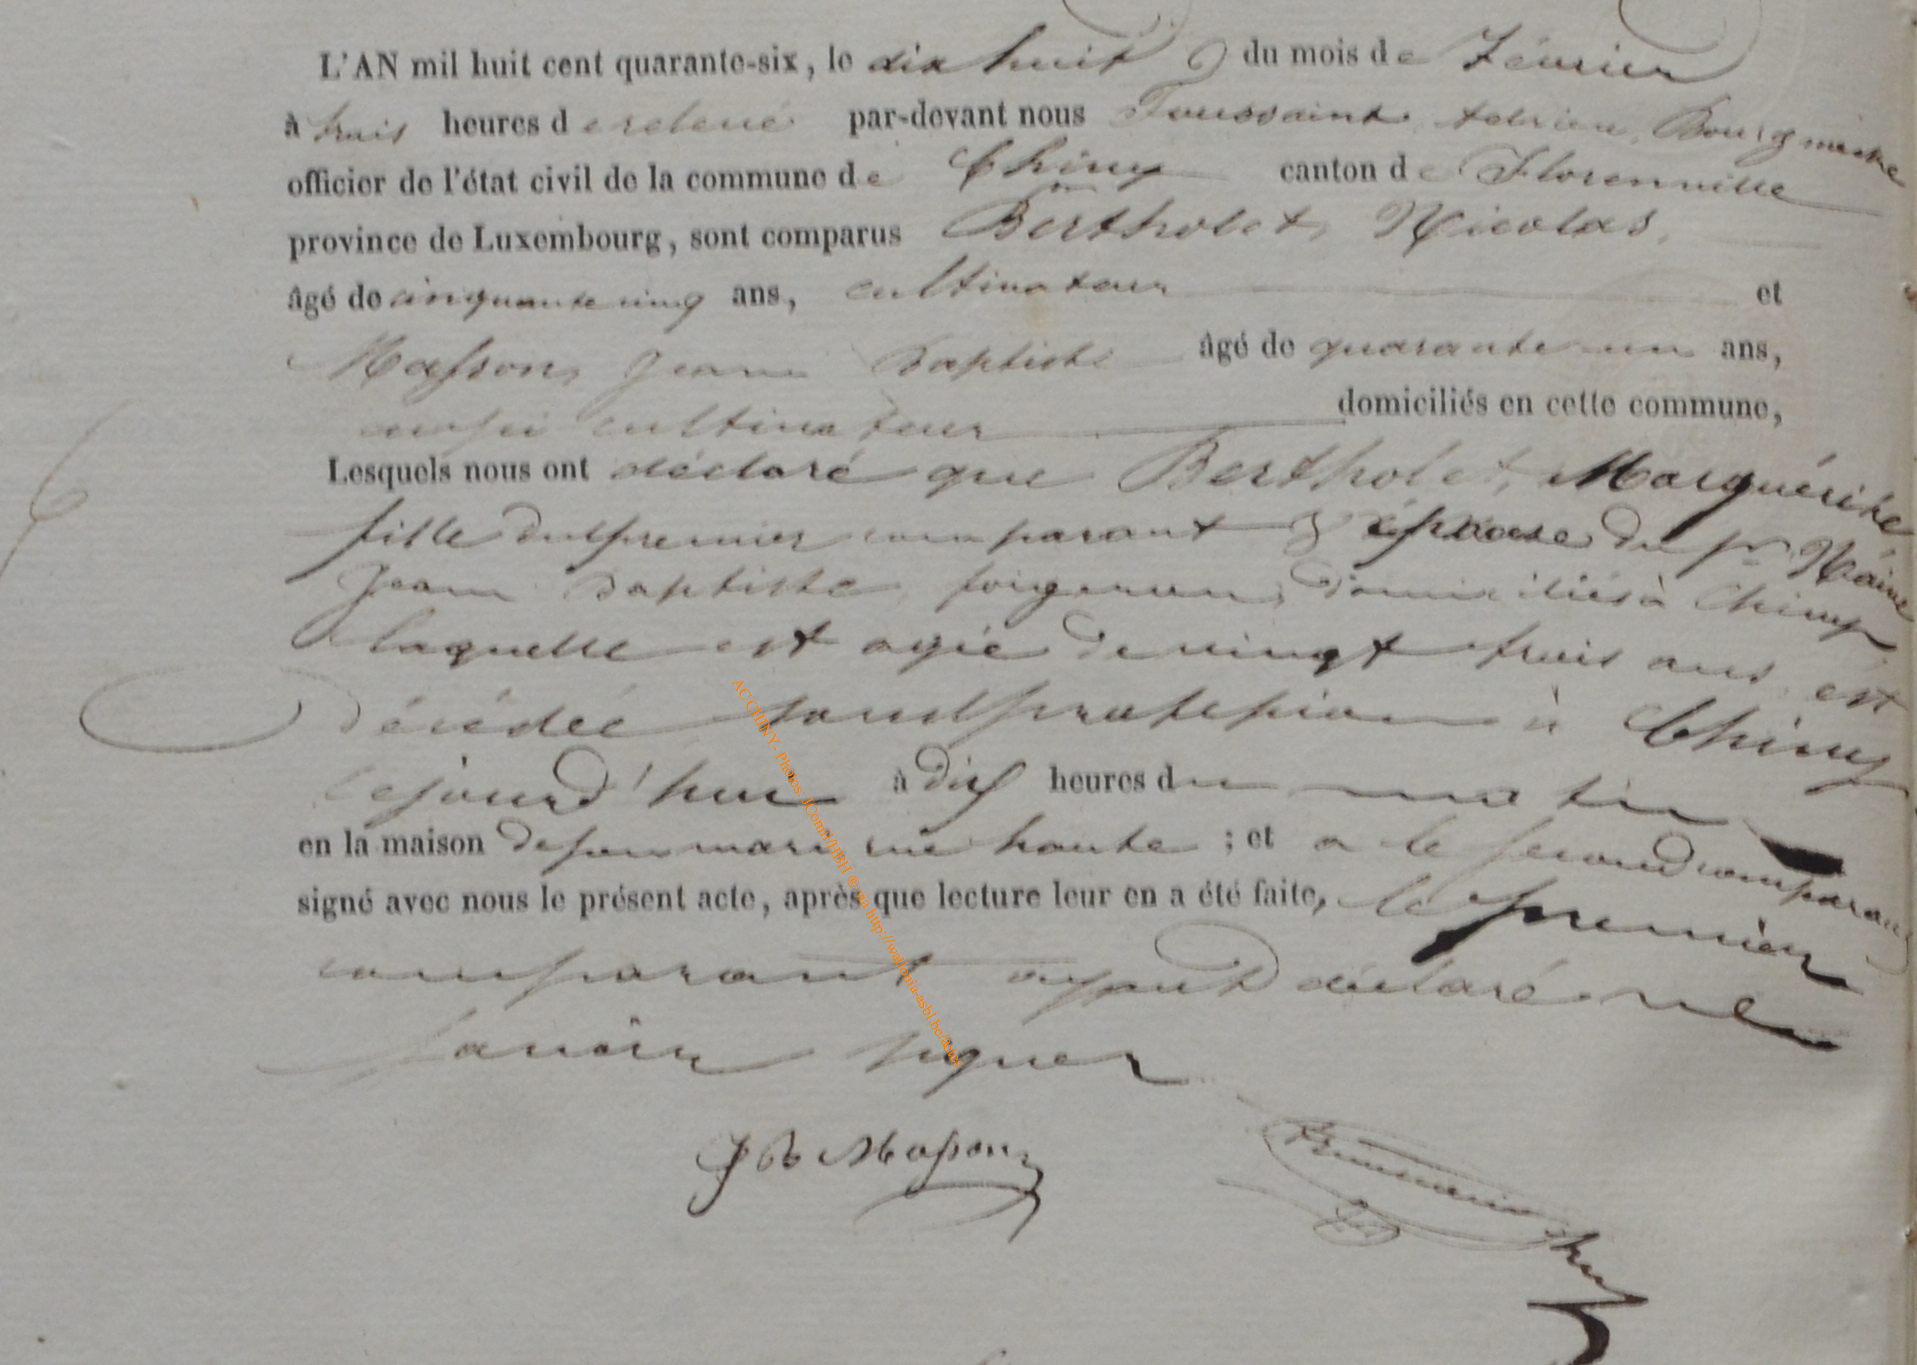 L'AN mil huit cent quarante-six, le dix huit du mois de Février
à trois heures de relevé par-devant nous Toussaint Adrien, Bourgmestre
officier de l'état civil de la commune de Chiny canton de Florenville
province de Luxembourg, sont comparus Bertholet, Nicolas,
âgé de cinquante cinq ans, cultivateur et
Masson, Jean Baptiste âgé de quarante un ans,
aussi cultivateur domiciliés en cette commune,
Lesquels nous ont déclaré que Bertholet, Marguérite
fille du premier comparant & épouse du sr
Jean Baptiste forgeron, domiciliés à Chiny
laquelle est agée de vingt trois ans est
décédée sans profession à Chiny
cejourd'hui à dix heures du matin
en la maison de son mari rue haute ; et a le second comparant
signé avec nous le présent acte, après que lecture leur en a été faite, le premier
comparant ayant déclaré ne
savoir signer
JB Masson
ACCHINY- Photos